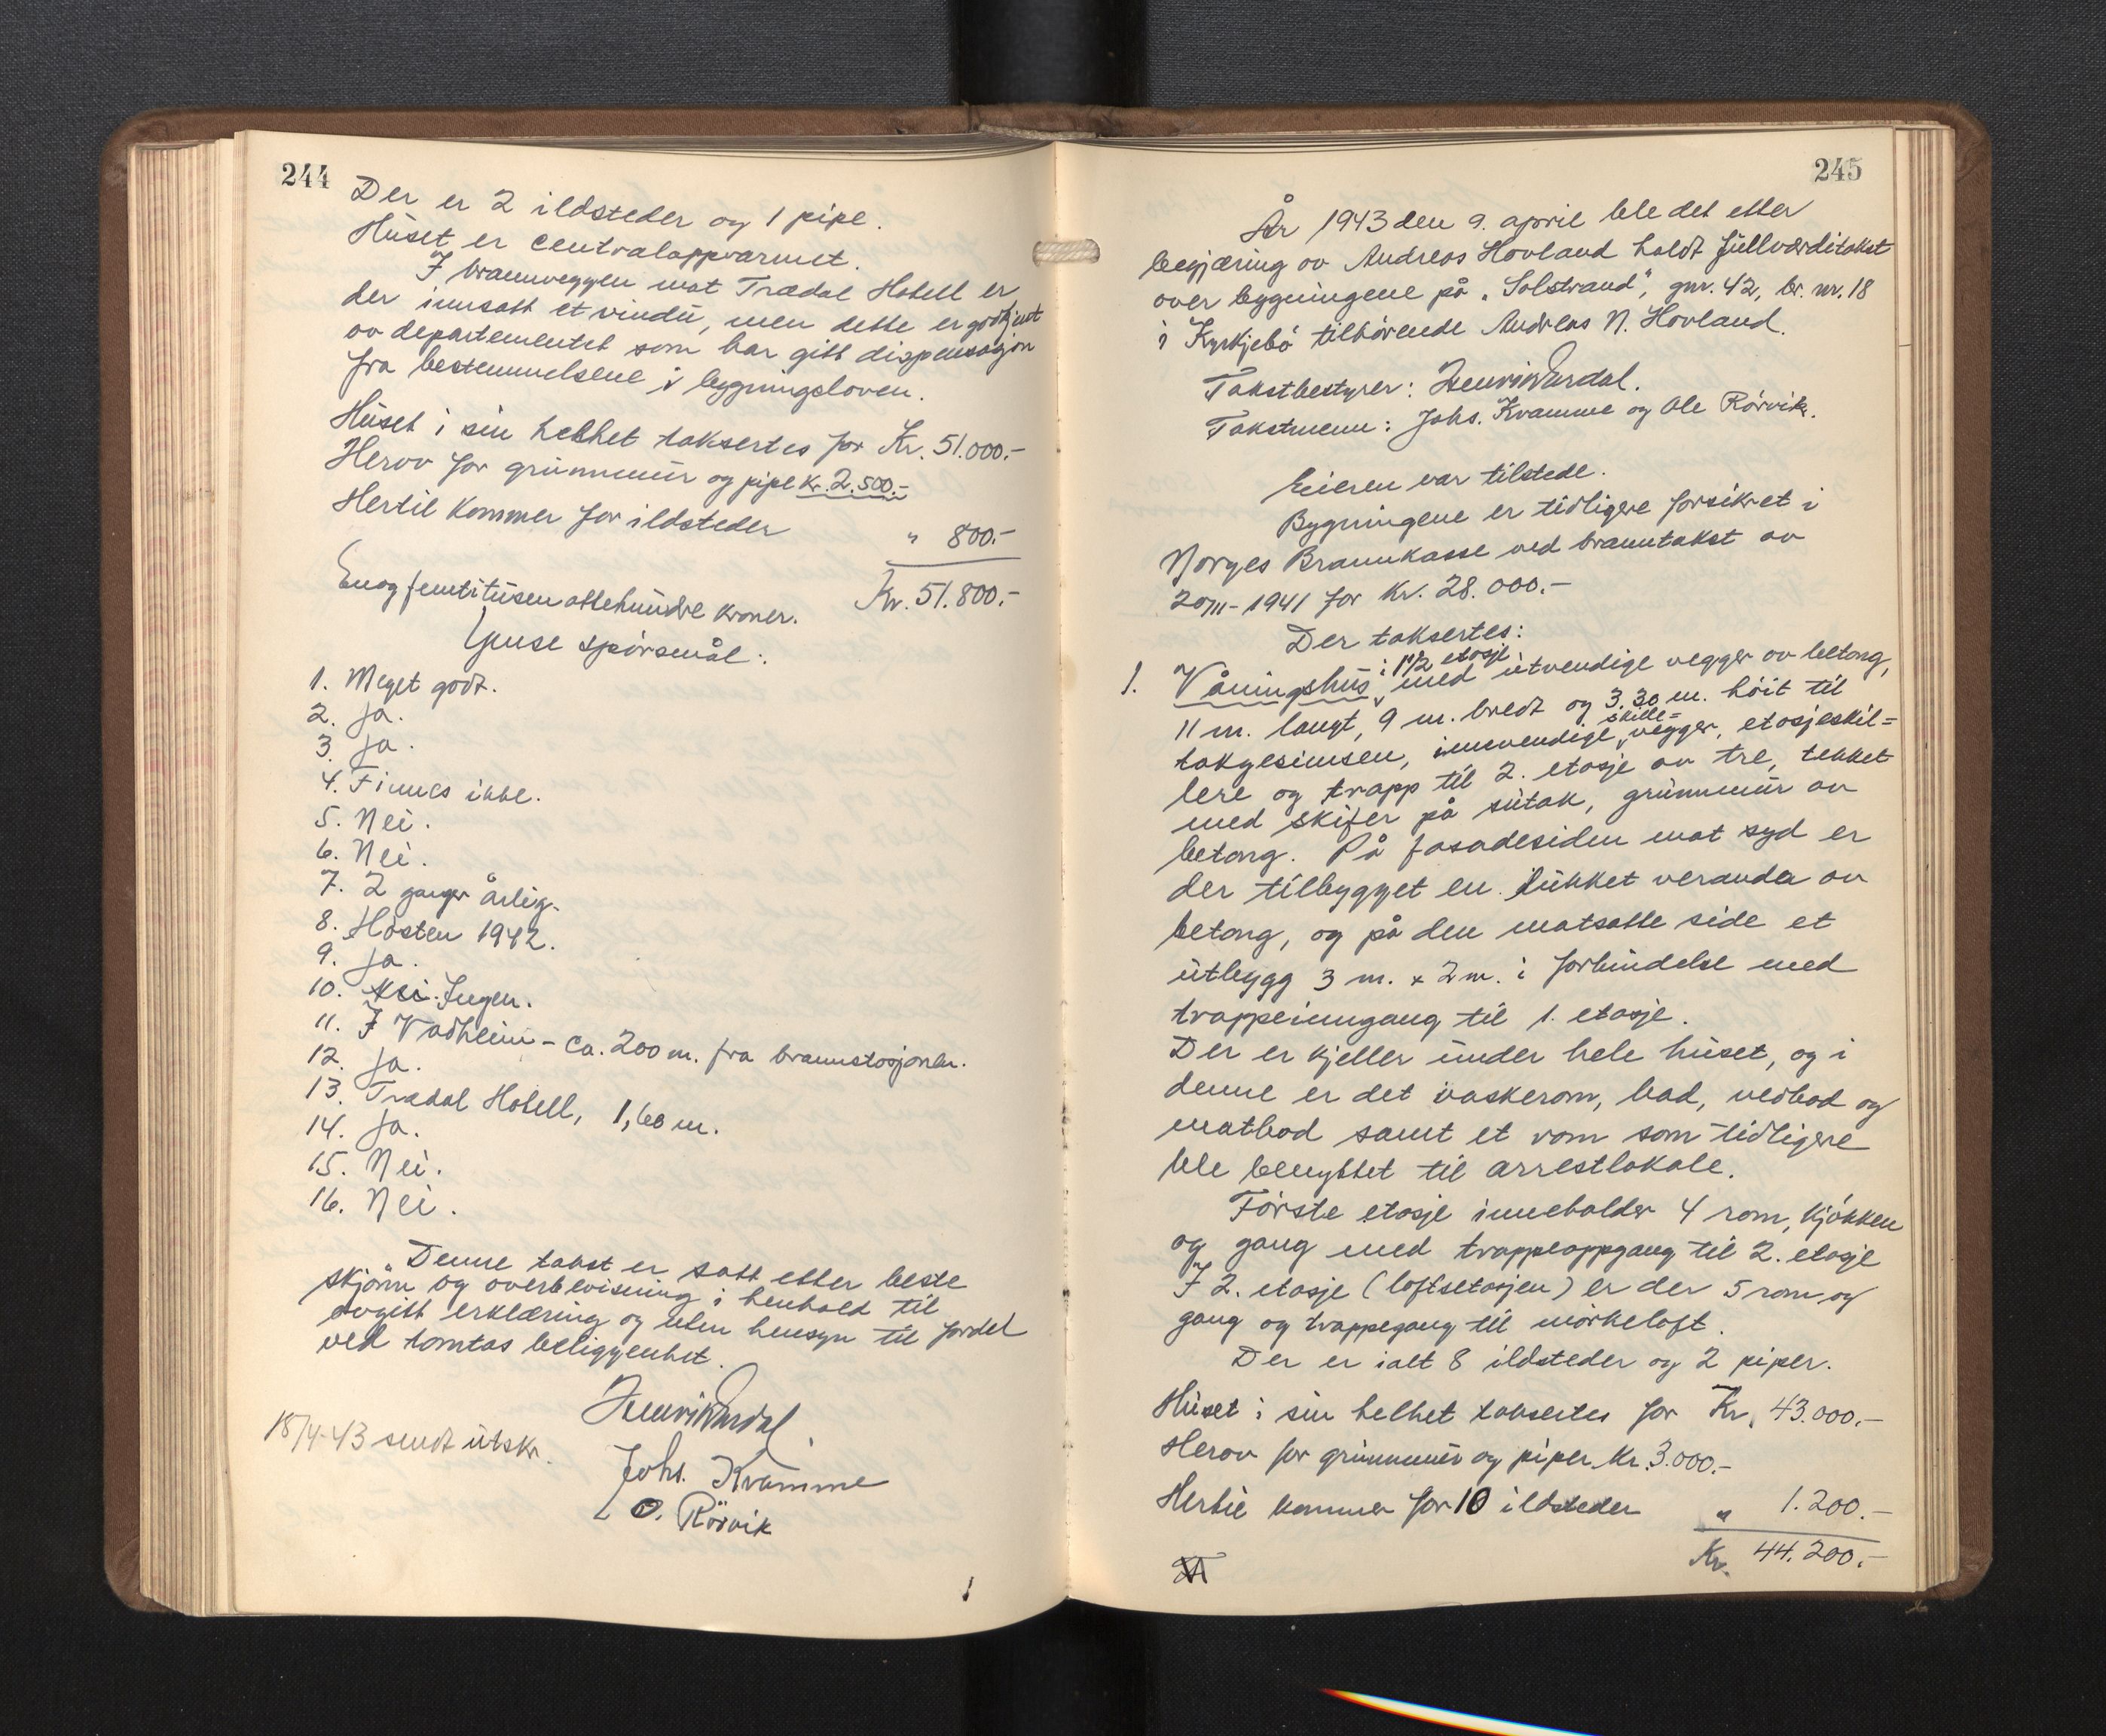 244
Der er 2 ildsteder og 1 pipe.
Huset er centraloppvarmet.
I brannveggen mot Trædal Hotell er
der innsatt et vindu, men dette er godkjent
av departementet som har gitt dispensasjon
fra bestemmelsene i bygningsloven.
Huset i sin helhet taksertes for Kr. 51.000.-
Herav for grunnmur og pipe Kr. 2.500.-
Hertil kommer for ildsteder " 800.-
Kr. 51.800.-
Enogfemtitusenottehundre kroner.
Ymse spørsmål:
1. Meget godt.
2. Ja.
3. Ja.
4. Finnes ikke.
5. Nei.
6. Nei.
7. 2 ganger årlig.
8. Høsten 1942.
9. Ja.
10. Nei. Ingen.
11. I Vadheim - ca. 200 m. fra brannstasjonen.
12. Ja.
13. Trædal Hotell, 1,60 m.
14. Ja.
15. Nei.
16. Nei.
Denne takst er satt etter beste
skjønn og overbevisning i henhold til
avgitt erklæring og uten hensyn til fordel
ved tomtas beliggenhet.
Henrik Vardal.
18/4-43 sendt utskr.
Johs. Kvamme
O. Rörvik
245
År 1943 den 9. april ble det etter
begjæring av Andreas Hovland holdt fullverditakst
over bygningene på "Solstrand", gnr. 42, br. nr. 18
i Kyrkjebø tilhørende Andreas N. Hovland.
Takstbestyrer: Henrik Vardal.
Takstmenn: Johs. Kvamme og Ole Rørvik.
Eieren var tilstede.
Bygningene er tidligere forsikret i
Norges Brannkasse ved branntakst av
20/11-1941 for Kr. 28.000.-
Der taksertes:
i 1 1/2 etasje
1. Våningshus, med utvendige vegger av betong,
11 m. langt, 9 m. bredt og 3.30 m. høit til
skille=
takgesimsen, innvendige vegger, etasjeskil=
lere og trapp til 2. etasje av tre, tekket
med skifer på sutak, grunnmur av
betong. På fasadesiden mot syd er
der tilbygget en lukket veranda av
betong, og på den motsatte side et
utbygg 3 m. x 2 m. i forbindelse med
trappeinngang til 1. etasje.
Der er kjeller under hele huset, og i
denne er det vaskerom, bad, vedbod og
matbod samt et rom som tidligere
ble benyttet til arrestlokale.
Første etasje inneholder 4 rom, kjøkken
og gang med trappeoppgang til 2. etasje
I 2. etasje (loftsetasjen) er der 5 rom og
gang og trappegang til mørkeloft.
Der er ialt 8 ildsteder og 2 piper.
Huset i sin helhet taksertes for Kr. 43.000.-
Herav for grunnmur og piper Kr. 3.000.-
Hertil kommer for 10 ildsteder " 1.200.-
Kr. 44.200.-